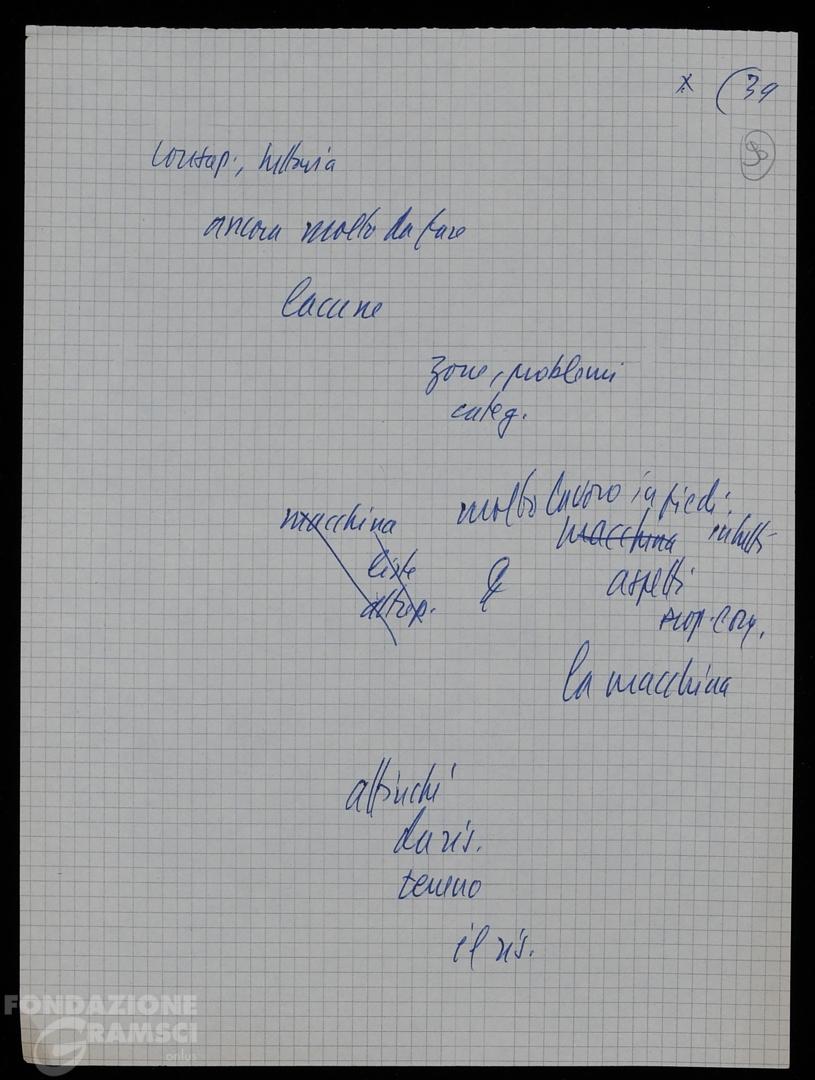 x (39
90
consap., tuttavia
ancora molto da fare
lacune
zone, problemi
categ.
molto lavoro in piedi.
macchina
macchina in tutti
liste
&
aspetti
prop. e org.
la macchina
affinché
da ris.
terreno
il ris.
FONDAZIONE
GRAMSCI
onlus